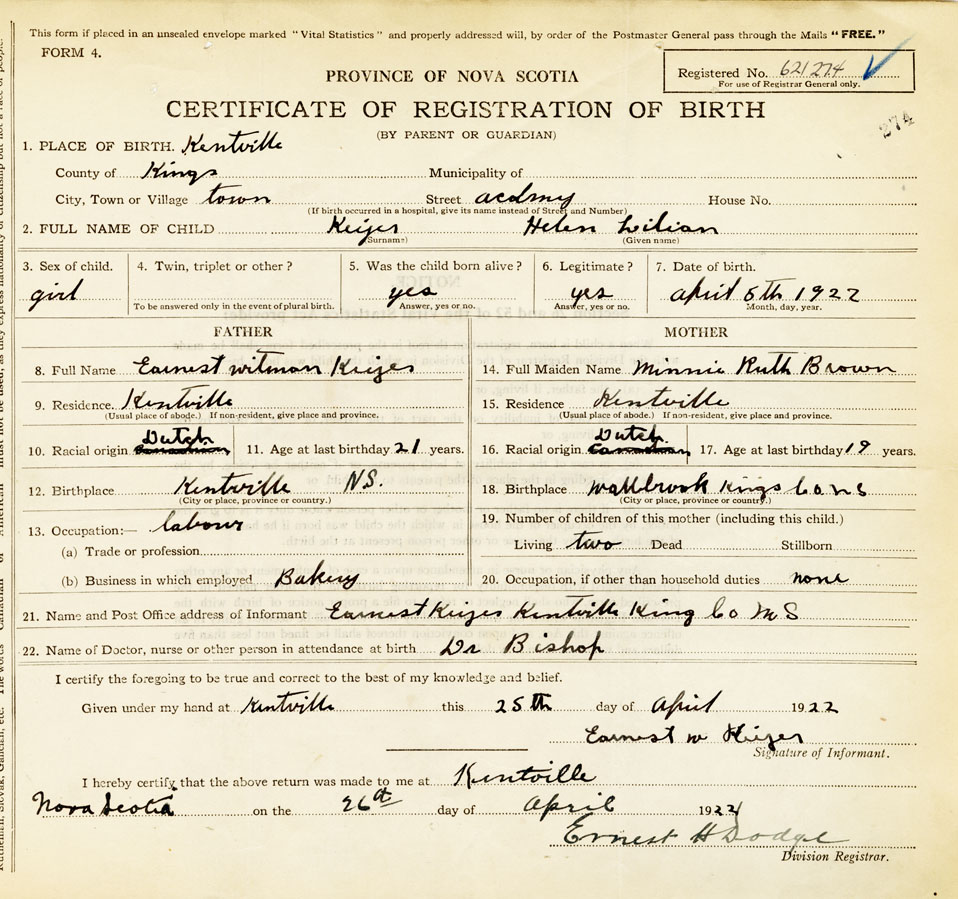 This form if placed in an unsealed envelope marked "Vital Statistics" and properly addressed will, by order of the Postmaster General pass through the Mails "FREE."
FORM 4.
PROVINCE OF NOVA SCOTIA
Registered No. 621274
For use of Registrar General only.
CERTIFICATE OF REGISTRATION OF BIRTH
(BY PARENT OR GUARDIAN)
274
1. PLACE OF BIRTH. Kentville
County of Kings Municipality of
City, Town or Village town Street acdmy House No.
(If birth occurred in a hospital, give its name instead of Street and Number)
2. FULL NAME OF CHILD Keizer Helen Lilian
(Surname) (Given name)
3. Sex of child. 4. Twin, triplet or other? 5. Was the child born alive? 6. Legitimate? 7. Date of birth.
girl yes yes april 5th 1922
To be answered only in the event of plural birth. Answer, yes or no. Answer, yes or no. Month, day, year.
FATHER
8. Full Name Earnest witman Keizer
9. Residence. Kentville
(Usual place of abode.) If non-resident, give place and province.
Dutch
10. Racial origin Canadian 11. Age at last birthday 21 years.
12. Birthplace Kentville NS.
(City or place, province or country.)
13. Occupation:— labour
(a) Trade or profession
(b) Business in which employed Bakery
MOTHER
14. Full Maiden Name Minnie Ruth Brown
15. Residence Kentville
(Usual place of abode.) If non-resident, give place and province.
Dutch
16. Racial origin Canadian 17. Age at last birthday 19 years.
18. Birthplace Wallbrook Kings Co. NS
(City or place, province or country.)
19. Number of children of this mother (including this child.)
Living two Dead Stillborn
20. Occupation, if other than household duties none
21. Name and Post Office address of Informant Earnest Keizer Kentville King Co N S
22. Name of Doctor, nurse or other person in attendance at birth Dr Bishop
I certify the foregoing to be true and correct to the best of my knowledge and belief.
Given under my hand at Kentville this 25th day of April 1922
Earnest W Keizer
Signature of Informant.
I hereby certify that the above return was made to me at Kentville
Nova Scotia on the 26th day of April 1922
Ernest H Dodge
Division Registrar.